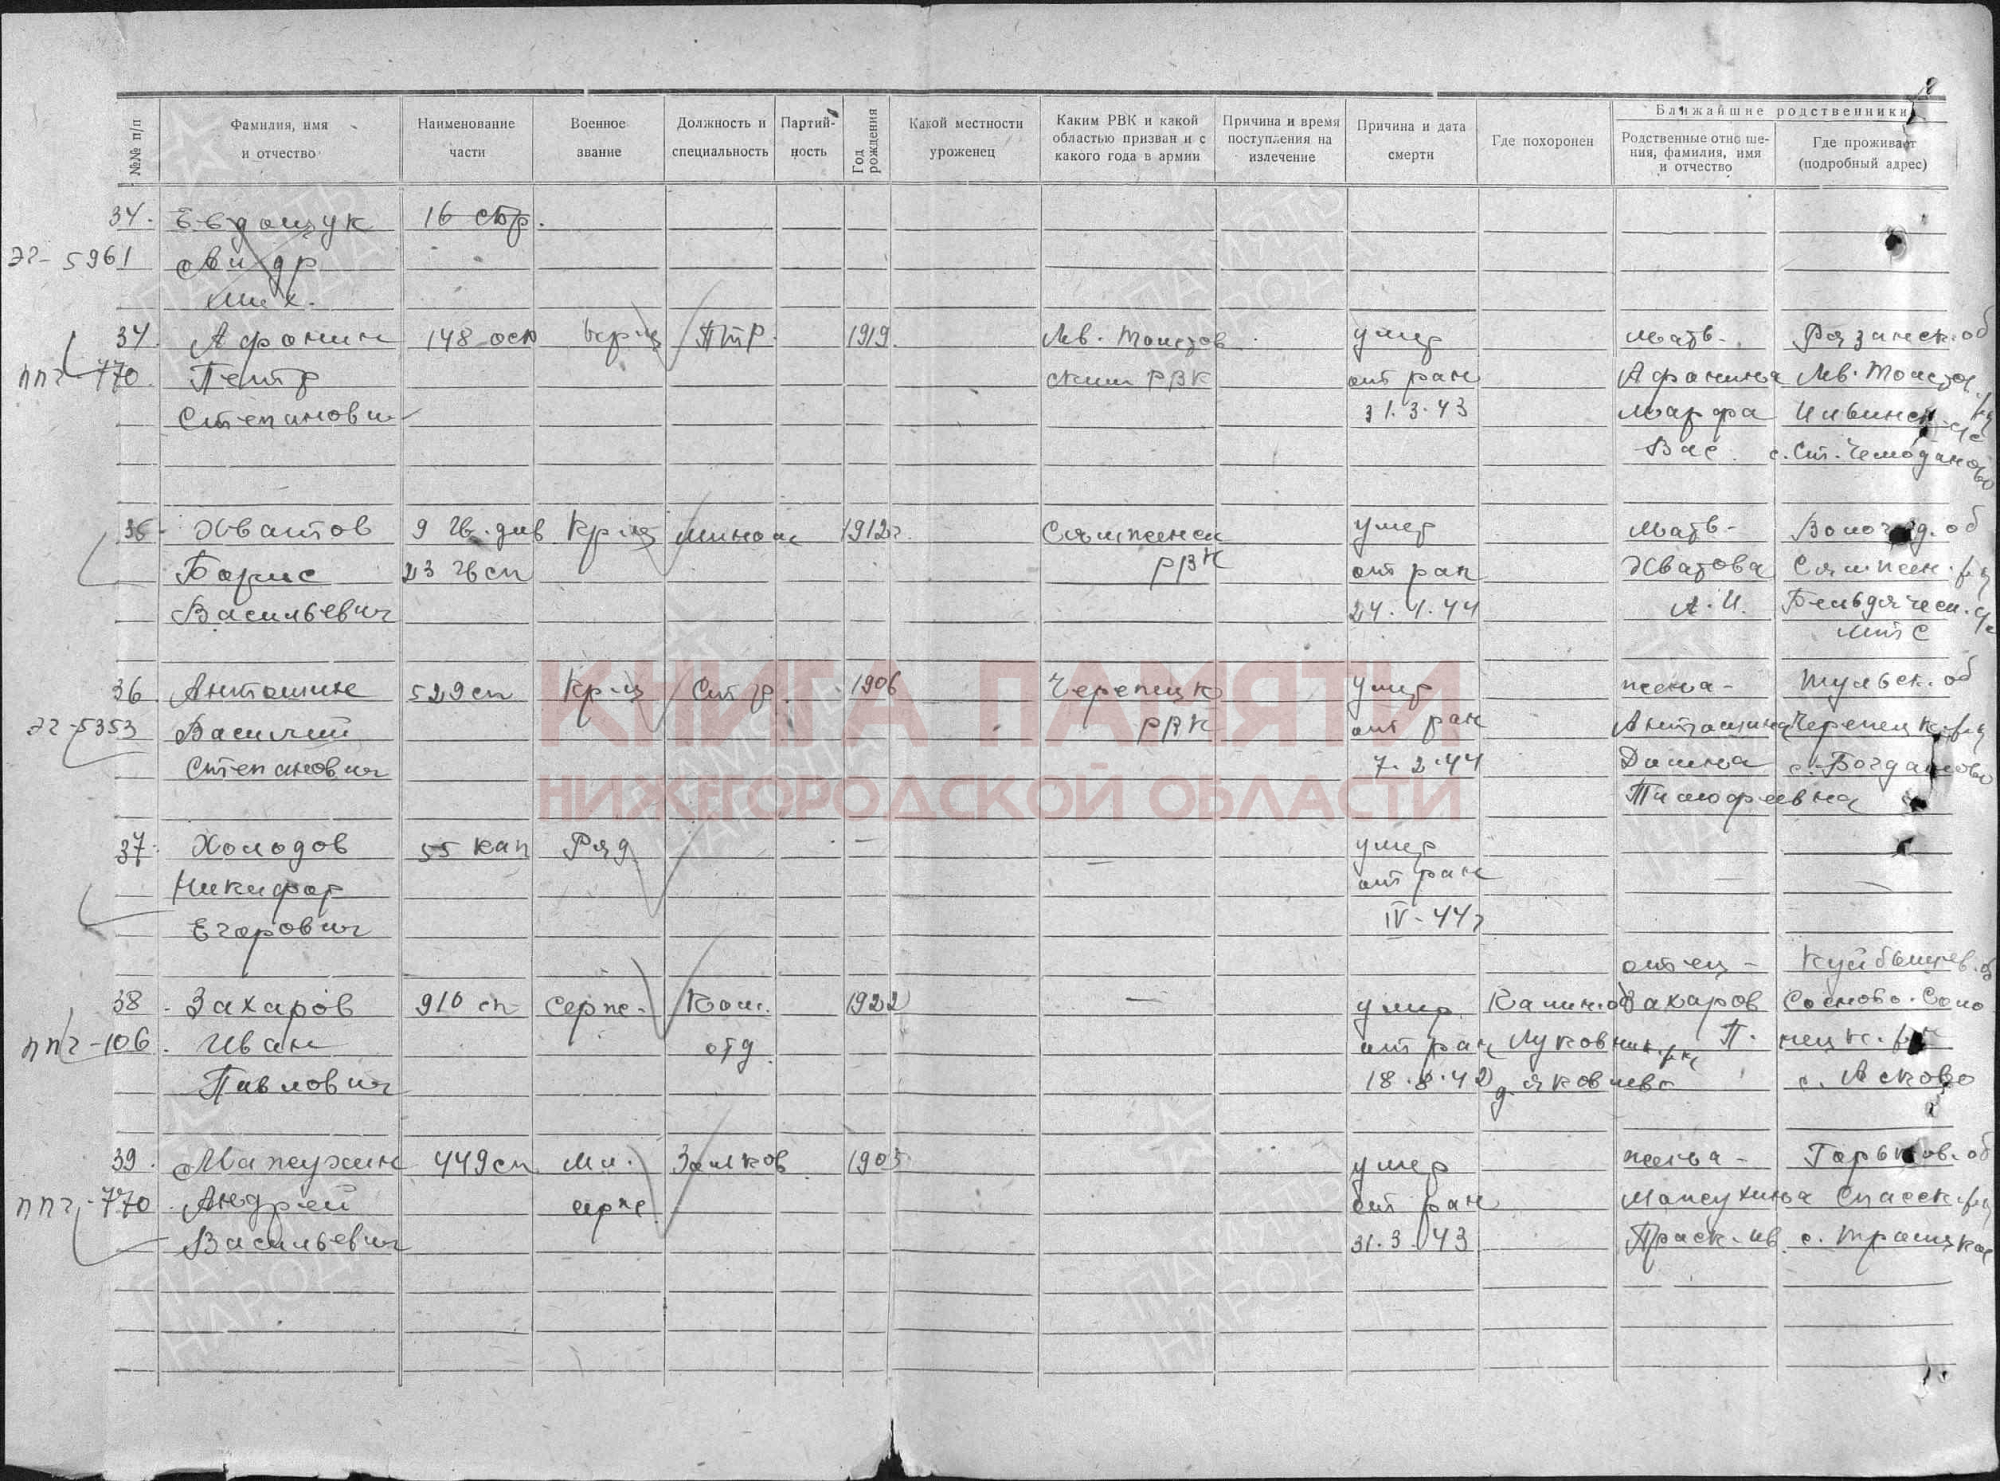 №№ п/п
Фамилия, имя
и отчество
Наименование
части
Военное
звание
Должность и
специальность
Партий-
ность
Год
рождения
Какой местности
уроженец
Каким РВК и какой
областью призван и с
какого года в армии
Причина и время
поступления на
излечение
Причина и дата
смерти
Где похоронен
Ближайшие родственники
Родственные отно ше-
ния, фамилия, имя
и отчество
Где проживает
(подробный адрес)
34. Евдощук
эг-5961
Мих.
34. Афонин 148 осп Кр-ц ПТР 1919 Лв. Толстов умер мать- Рязанск. об
ппг-770. Петр ским РВК от ран Афонина Лв. Толстов.
Степанович 31.3.43 Марфа
Вас. с. Ст. Чемоданово
36 Хватов 9 гв. див Кр-ц 1912г. Сямженск умер мать- Вологод. об
Борис 23 гвсп РВК от ран Хватова Сямжен. р-н
Васильевич 24.1.44 А.И.
МТС
36. Антошин 529 сп Кр-ц Стр. 1906 Черепецк умер жена- Тульск. об
эг-5353 Василий РВК от ран Антошина Черепецк. р-н
Степанович 7.2.44 с. Богданово
Тимофеевна
37. Холодов 55 кап Ряд. — — умер
Никифор от ран
Егорович IV-44г
отец- Куйбышев. об
38. Захаров 910 сп серж. Ком. 1922 — умер Калин. об Захаров Сосново-Соло
ппг-106. Иван отд. от ран Луковник. р-н П. нецк. р-н
Павлович 18.8.42 д. Яковлево с. Асково
39. Мажухин 449 сп Мл. Замков 1905 умер жена- Горьков. об
ппг-770 Андрей серж. от ран Спасск. р-н
Васильевич 31.3.43 Праск. Ив. с. Троицкое
КНИГА ПАМЯТИ
НИЖЕГОРОДСКОЙ ОБЛАСТИ
ПАМЯТЬ
НАРОДА